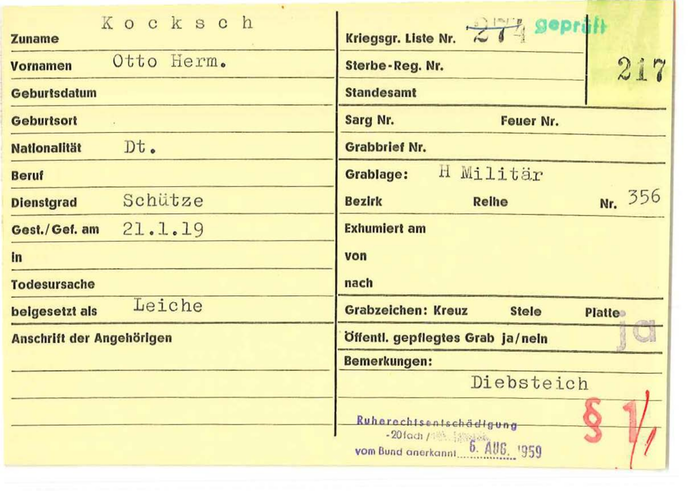 Zuname Kocksch
Vornamen Otto Herm.
Geburtsdatum
Geburtsort
Nationalität Dt.
Beruf
Dienstgrad Schütze
Gest./Gef. am 21.1.19
in
Todesursache
beigesetzt als Leiche
Anschrift der Angehörigen
Kriegsgr. Liste Nr. 274 geprüft
217
Sterbe-Reg. Nr.
Standesamt
Sarg Nr. Feuer Nr.
Grabbrief Nr.
Grablage: H Militär
Bezirk Reihe Nr. 356
Exhumiert am
von
nach
Grabzeichen: Kreuz Stele Platte
Öffentl. gepflegtes Grab ja/nein ja
Bemerkungen:
Diebsteich
§ 1/1
Ruherechtsentschädigung
-20fach /
vom Bund anerkannt 6. AUG. 1959